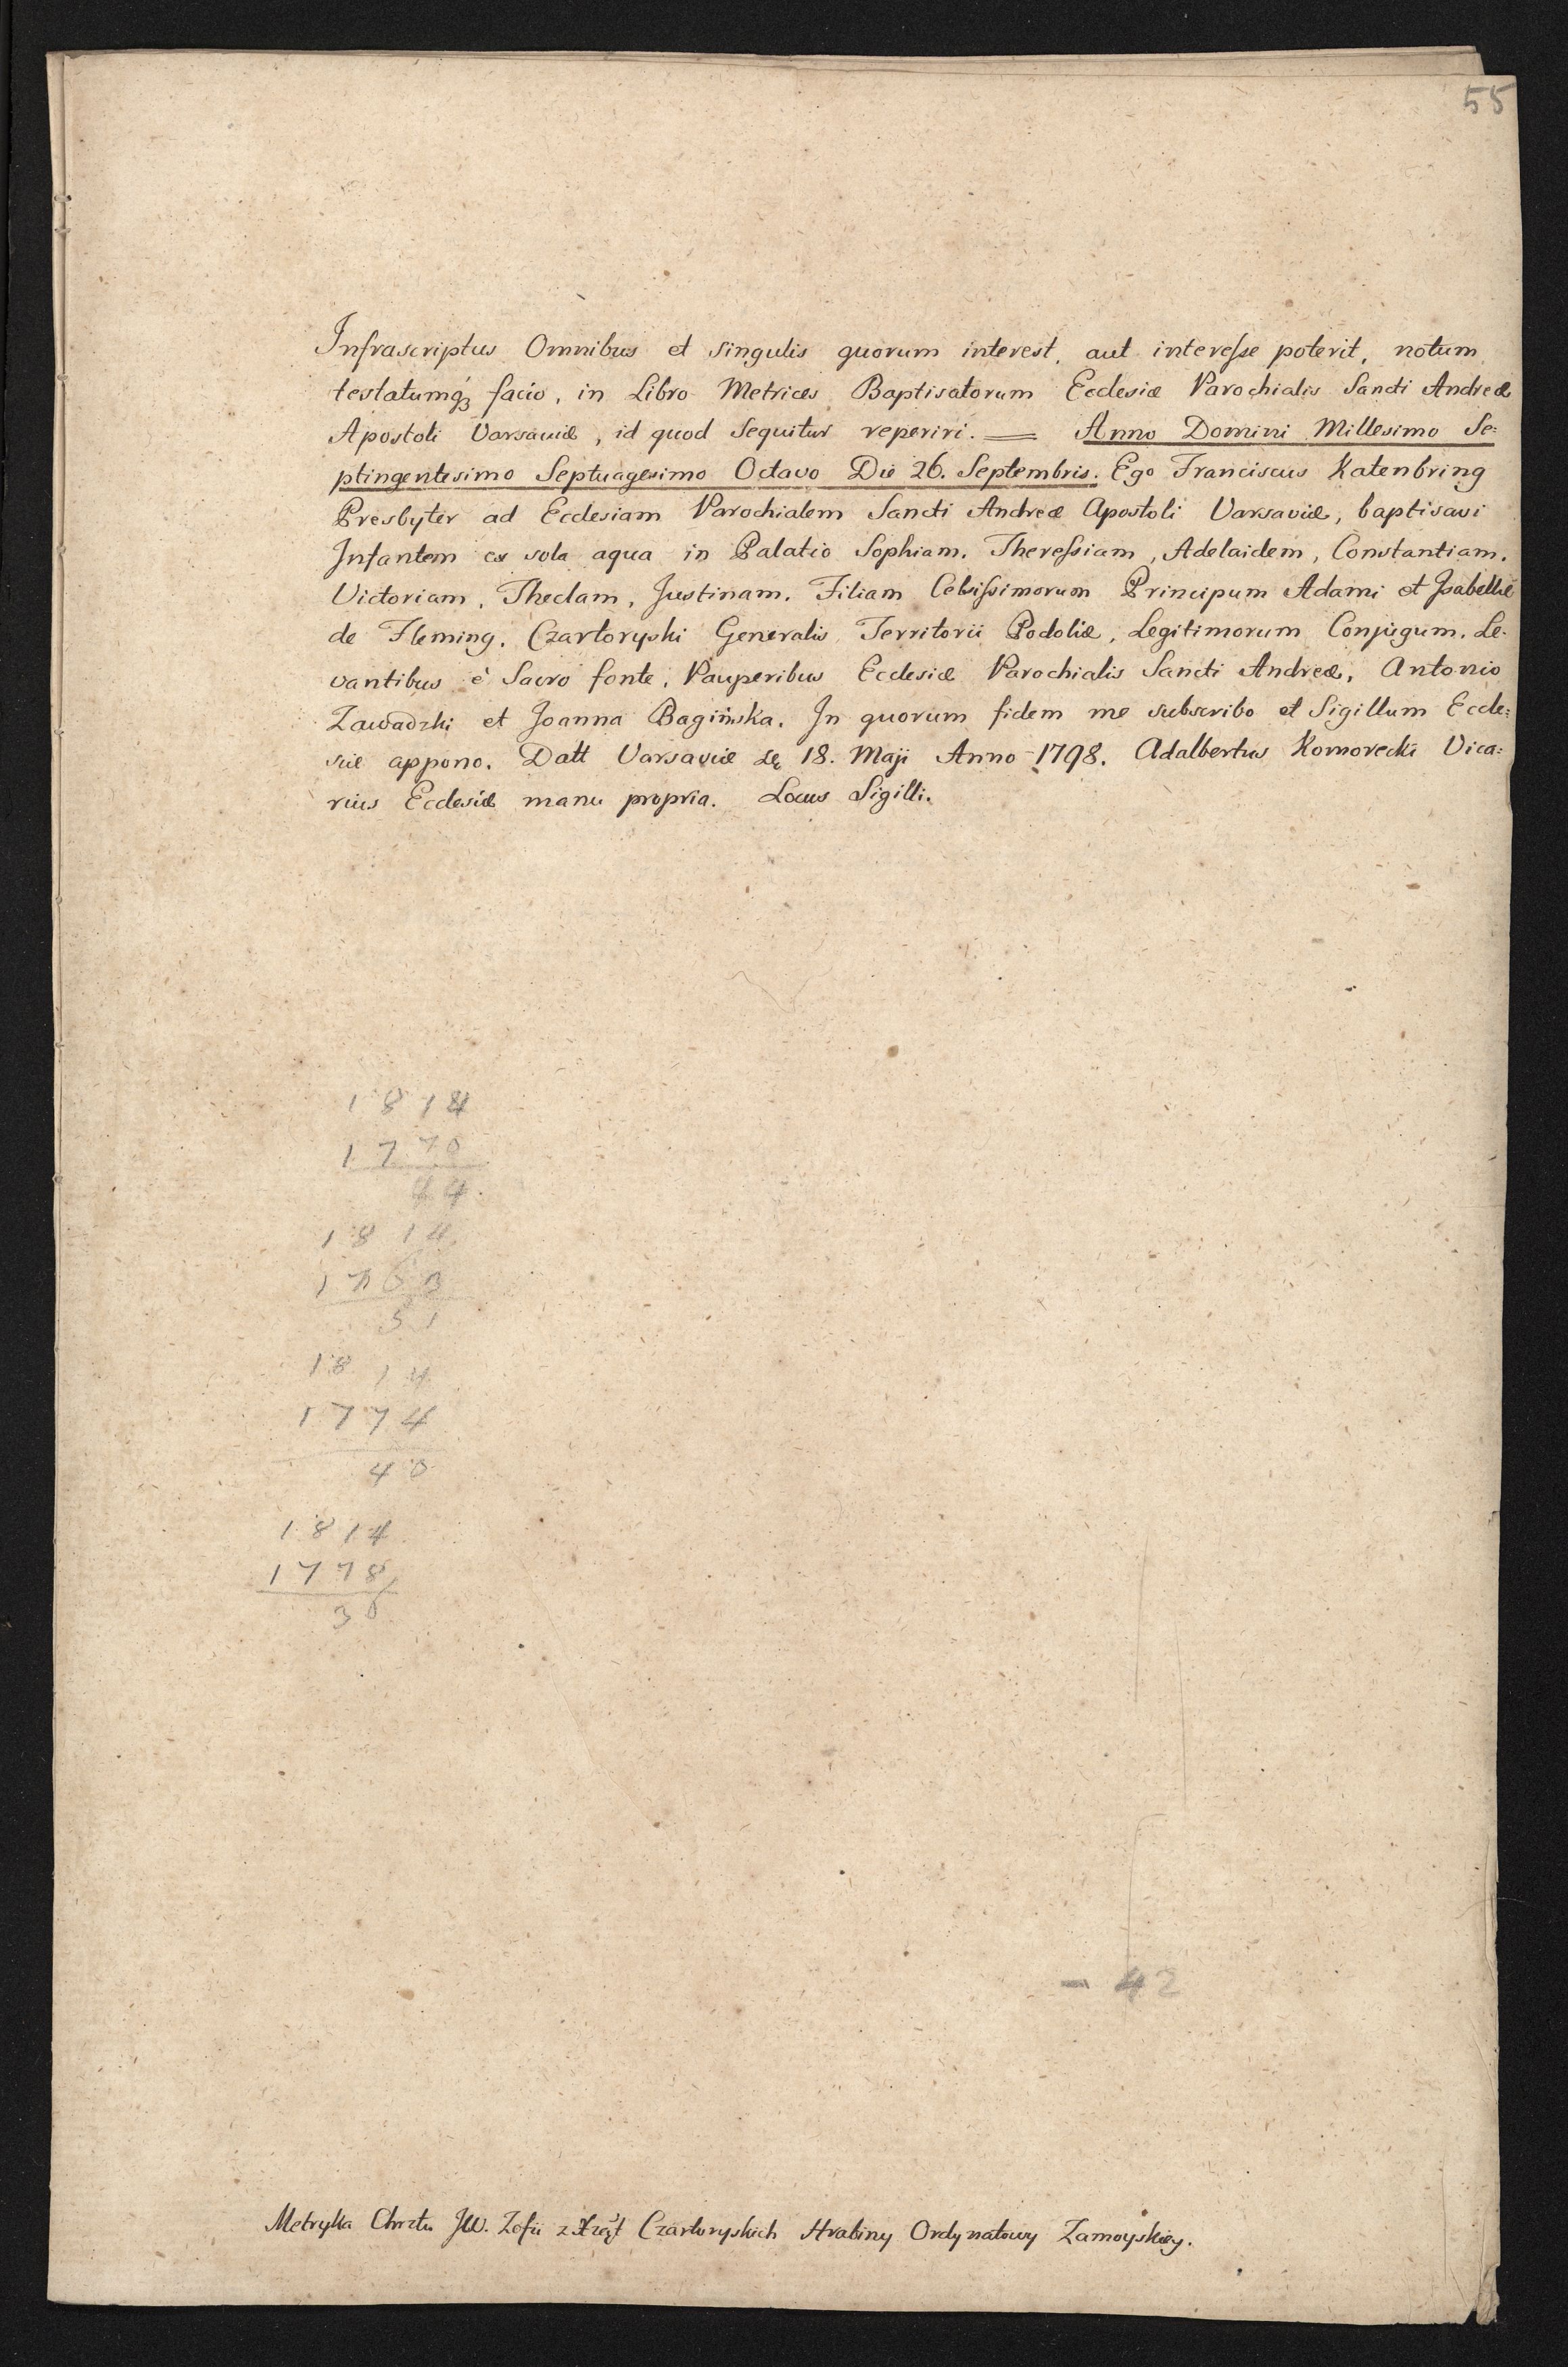 55
Infrascriptus Omnibus et Singulis quorum interest, aut interesse poterit, notum
testatumq₃ facio, in Libro Metrices Baptisatorum Ecclesiæ Parochialis Sancti Andreæ
Apostoli Varsaviæ, id quod Sequitur reperiri. = Anno Domini Millesimo Se=
ptingentesimo Septuagesimo Octavo Die 26. Septembris. Ego Franciscus Katenbring
Presbyter ad Ecclesiam Parochialem Sancti Andreæ Apostoli Varsaviæ, baptisavi
Infantem ex sola aqua in Palatio Sophiam. Theressiam, Adelaidem, Constantiam.
Victoriam, Theclam, Justinam. Filiam Celsissimorum Principum Adami et Isabellæ
de Fleming. Czartoryski Generalis Territorii Podoliæ, Legitimorum Conjugum. Le-
vantibus è Sacro fonte, Pauperibus Ecclesiæ Parochialis Sancti Andreæ, Antonio
Zawadzki et Joanna Bagińska. In quorum fidem me subscribo et Sigillum Eccle=
siæ appono. Datt Varsaviæ 18. Maji Anno 1798. Adalbertus Komorecki Vica=
rius Ecclesiæ manu propria. Locus Sigilli.
1814
1770
44.
1814
1763
51
1814
1774
40
1814
1778
36
- 42
Metryka Chrztu JW. Zofii z Xżąt Czartoryskich Hrabiny Ordynatowy Zamoyskiey.